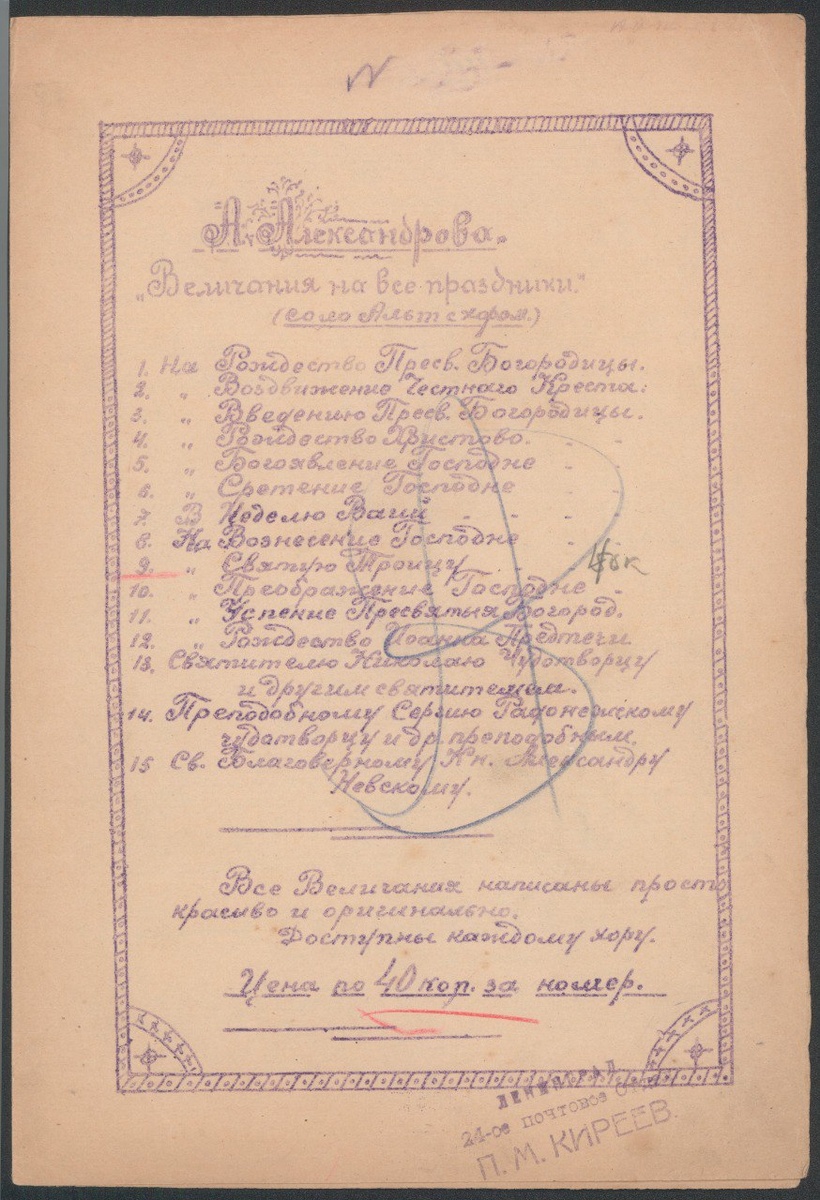 А. Александрова.
„Величания на все праздники.“
(соло Альт с хором.)
1. На Рождество Пресв. Богородицы.
2. „ Воздвижение Честнаго Креста.
3. „ Введению Пресв. Богородицы.
4. „ Рождество Христово. - -
5. „ Богоявление Господне - -
6. „ Сретение Господне - -
7. В Неделю Ваий - - - -
8. На Вознесение Господне -
9. „ Святую Троицу - -
10. „ Преображение Господне -
11. „ Успение Пресвятыя Богород.
12. „ Рождество Иоанна Предтечи
13. Святителю Николаю Чудотворцу
и другим святителям.
14. Преподобному Сергию Радонежскому
чудатворцу и др. преподобным.
15 Св. Благоверному Кн. Александру
Невскому.
Все Величания написаны просто
красиво и оригинально.
Доступны каждому хору.
Цена по 40 коп. за номер.
ЛЕНИНГРАД
24-ое почтовое
П. М. КИРЕЕВ.